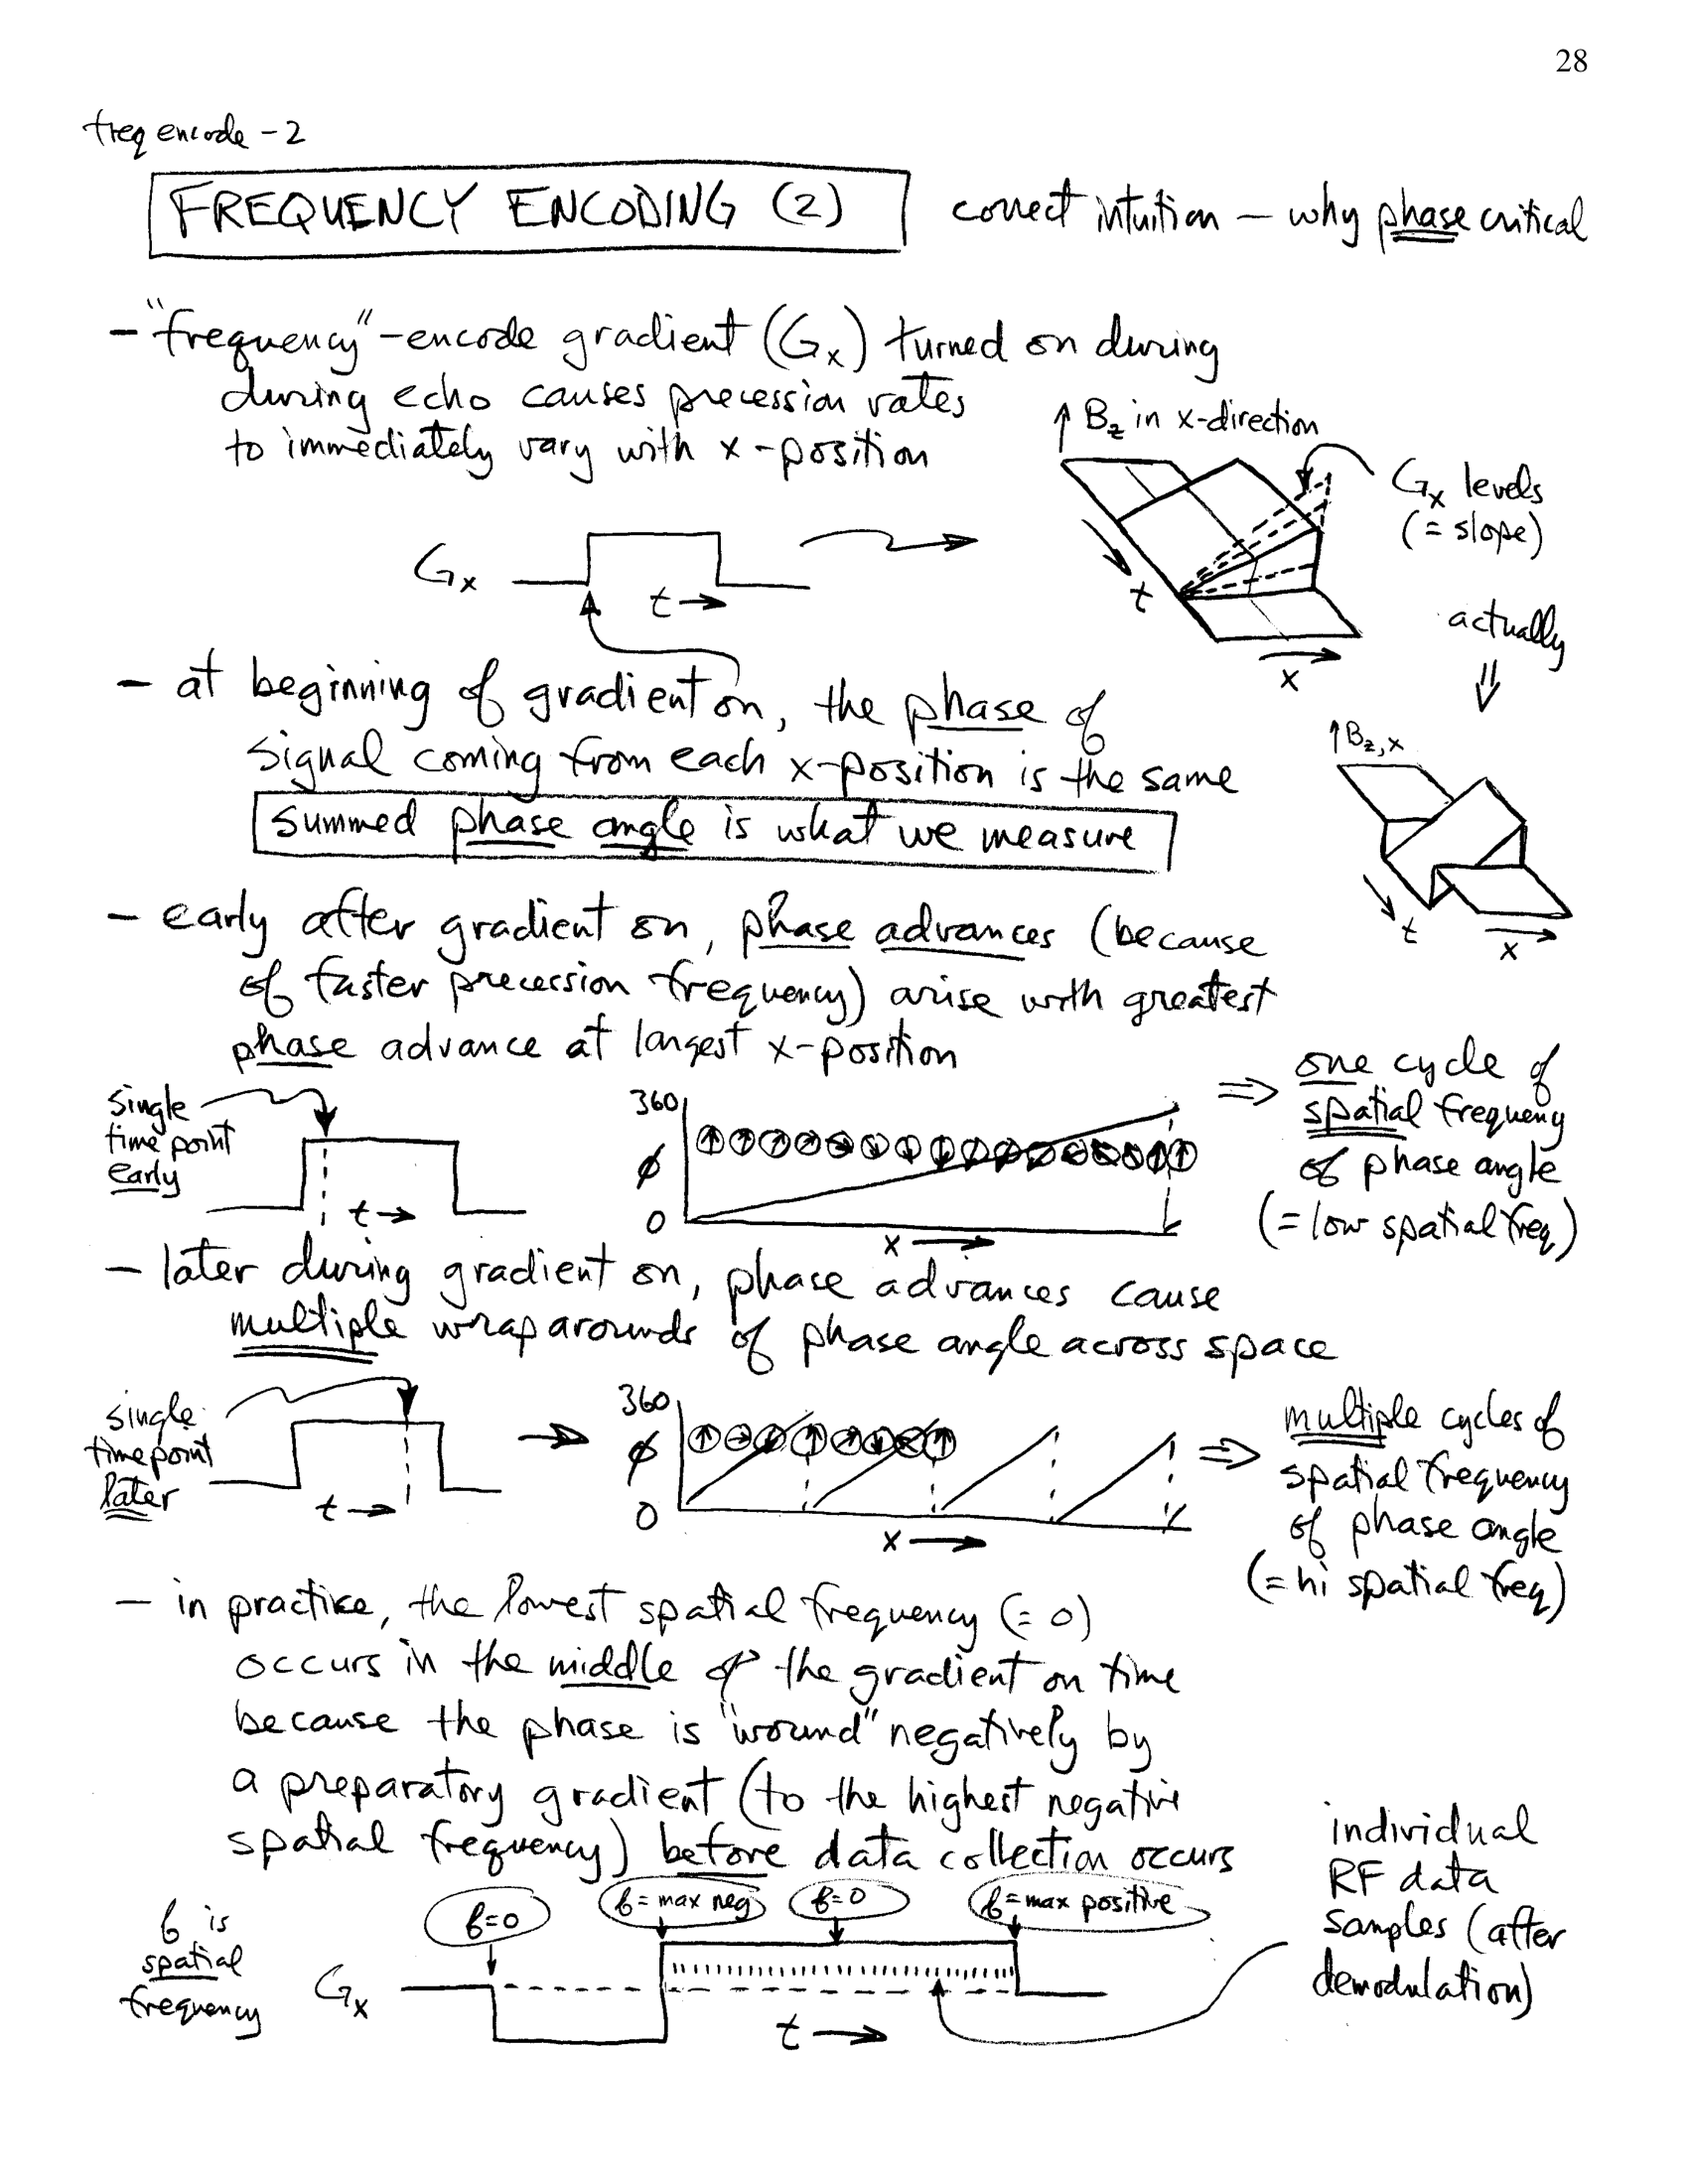 28
freq encode - 2
FREQUENCY ENCODING (2)
correct intuition — why phase critical
- "frequency"-encode gradient (Gx) turned on during
during echo causes precession rates
to immediately vary with x-position
↑ Bz in x-direction
Gx levels
(= slope)
Gx
t →
t
x
actually
⇓
- at beginning of gradient on, the phase of
signal coming from each x-position is the same
summed phase angle is what we measure
↑Bz,x
t
x
- early after gradient on, phase advances (because
of faster precession frequency) arise with greatest
phase advance at largest x-position
single
time point
early
t →
360
ϕ
0
x →
⇒ one cycle of
spatial frequency
of phase angle
(= low spatial freq)
- later during gradient on, phase advances cause
multiple wraparounds of phase angle across space
single
time point
later
t →
360
ϕ
0
x →
⇒ multiple cycles of
spatial frequency
of phase angle
(= hi spatial freq)
- in practice, the lowest spatial frequency (= 0)
occurs in the middle of the gradient on time
because the phase is "wound" negatively by
a preparatory gradient (to the highest negative
spatial frequency) before data collection occurs
individual
RF data
samples (after
demodulation)
f is
spatial
frequency
f=0
f=max neg
f=0
f=max positive
Gx
t →